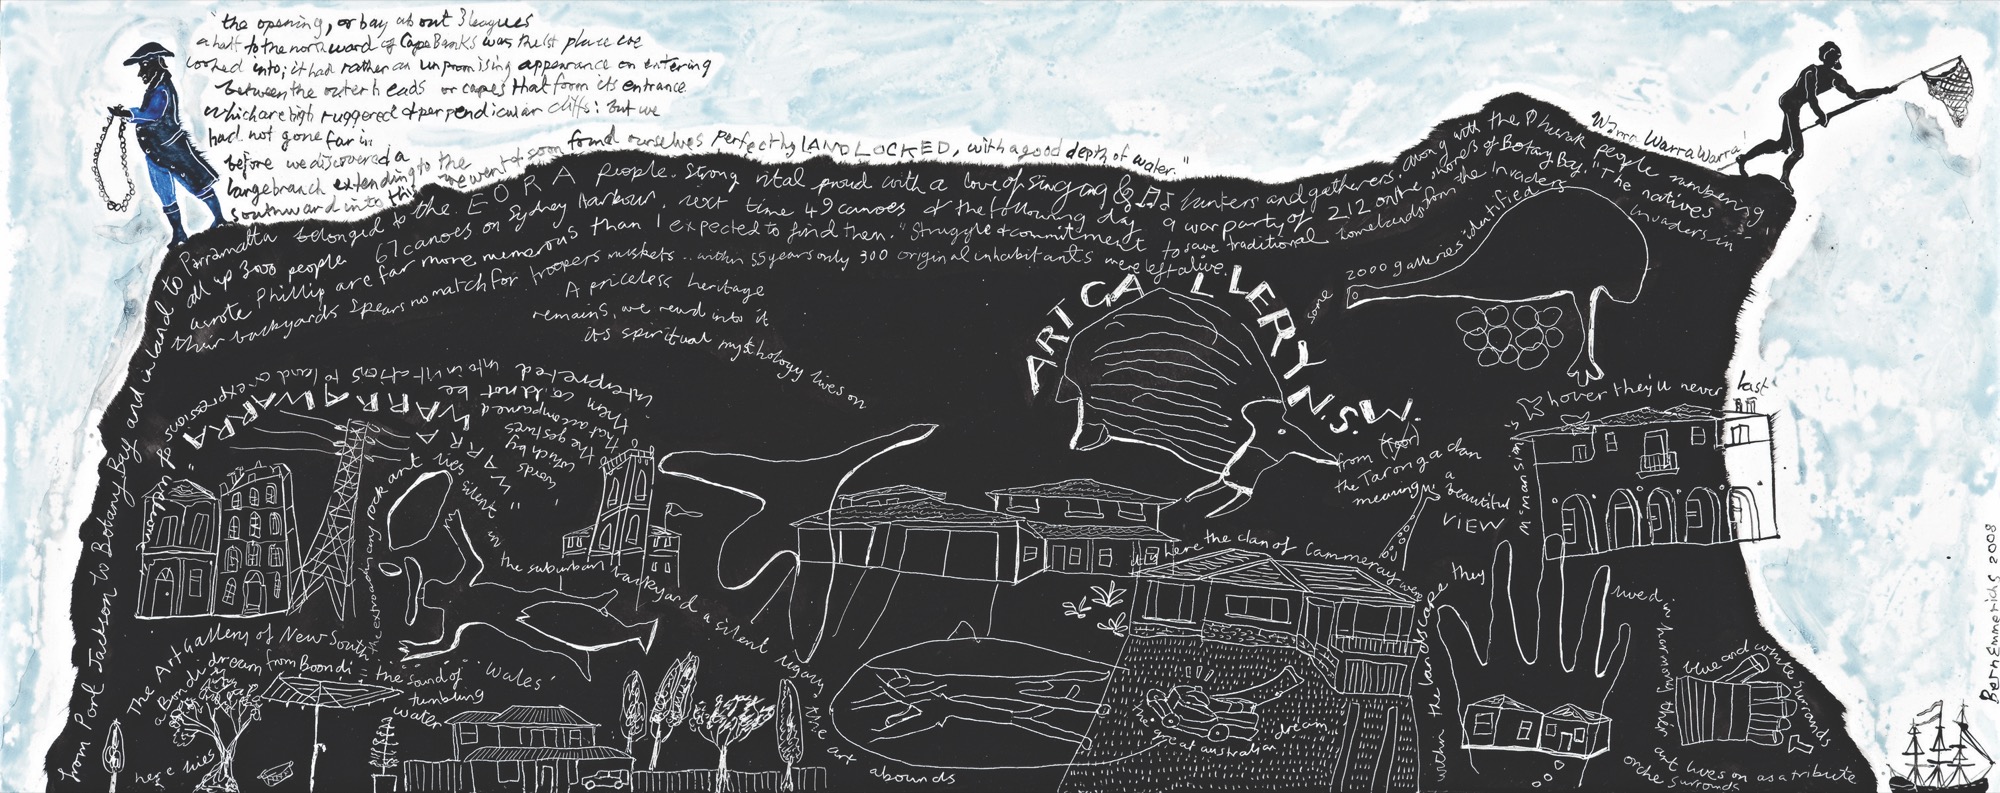 "the opening, or bay about 3 leagues
a half to the northward of Cape Banks was the 1st place we
looked into; it had rather an unpromising appearance on entering
between the outer heads or capes that form its entrance
which are high ruggered & perpendicular cliffs: but we
had not gone far in
before we discovered a
large branch extending to the
southward into this we went & soon found ourselves perfectly LANDLOCKED, with a good depth of water."
Warra Warra Warra
from Port Jackson to Botany Bay and inland to Parramatta belonged to the EORA people. Strong vital proud with a love of singing & hunters and gatherers, along with the Dharak people numbering
all up 3000 people 67 canoes on Sydney Harbour, next time 49 canoes & the following day a war party of 212 on the shores of Botany Bay. "The natives
wrote Phillip are far more numerous than I expected to find them." Struggle & commitment to save traditional homelands from the invaders
their backyards spears no match for troopers muskets.. within 55 years only 300 original inhabitants were left alive.
invaders in
A priceless heritage
remains, we read into it
its spiritual mythology lives on
ART GALLERY N.S.W.
some 2000 galleries identified
WARRA WARRA
words
which by
the gestures
that accompanied
them could not be
interpreted
into invitations to land or expressions of
the extraordinary rock art lies silent in
the suburban backyard a silent
like art abounds
from
the Taronga clan
meaning a
beautiful
VIEW
hover they'll never last
Mcmansim's
it is here the clan of Cammeray were
within the landscape they lived in harmony
The Art Gallery of New South 'Wales'
a Bondi dream from Boondi the sound of
tumbling
water
here lies
the great australian dream
blue and white surrounds
art lives on as a tribute
on the surrounds
Bern Emmerichs 2008